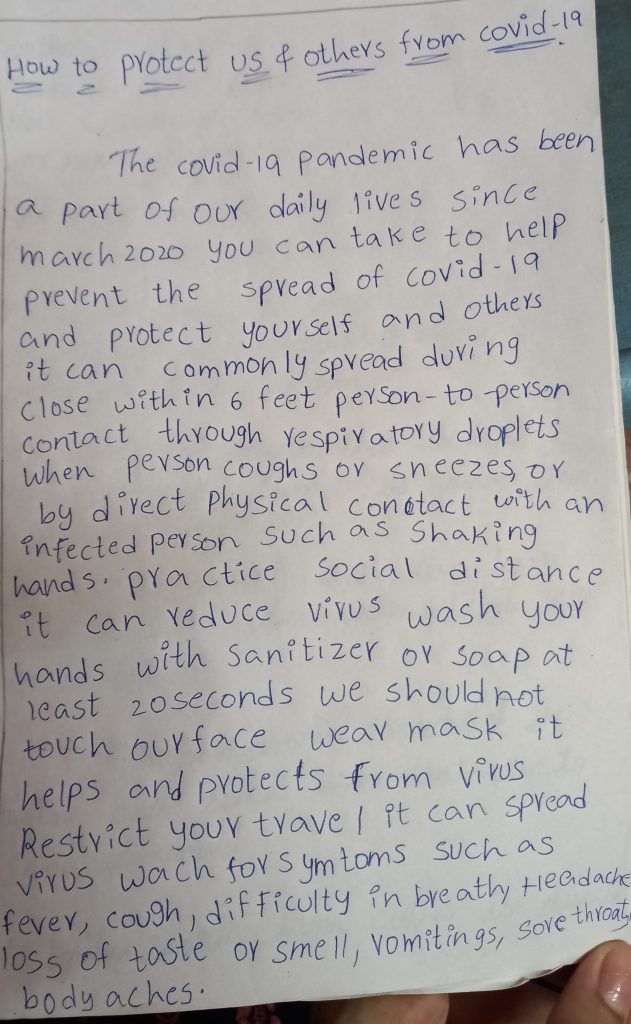 How to protect us & others from covid-19
The covid-19 pandemic has been
a part of our daily lives since
march 2020 you can take to help
prevent the spread of covid-19
and protect yourself and others
it can commonly spread during
close within 6 feet person-to-person
contact through respiratory droplets
when person coughs or sneezes, or
by direct physical conctact with an
infected person such as shaking
hands. practice social distance
it can reduce virus wash your
hands with sanitizer or soap at
least 20seconds we should not
touch our face wear mask it
helps and protects from virus
Restrict your travel it can spread
virus wach for symtoms such as
fever, cough, difficulty in breathy Headache
loss of taste or smell, vomitings, sore throat,
body aches.